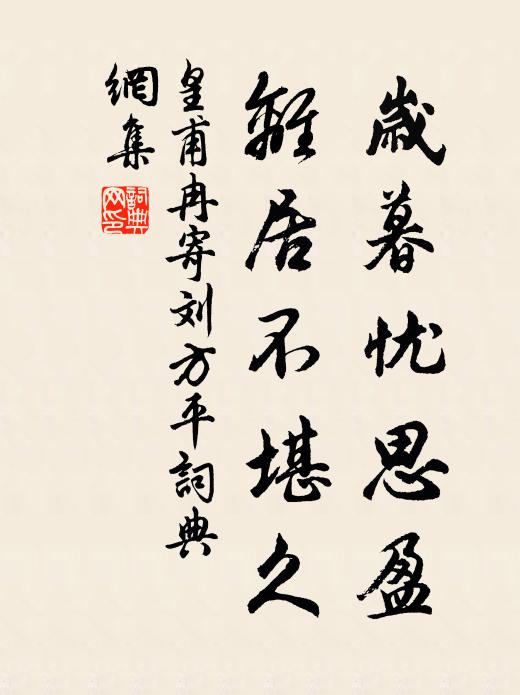 歲暮忧思盈
離居不堪久
皇甫冉寄刘方平詞典
網集
詞典
网印